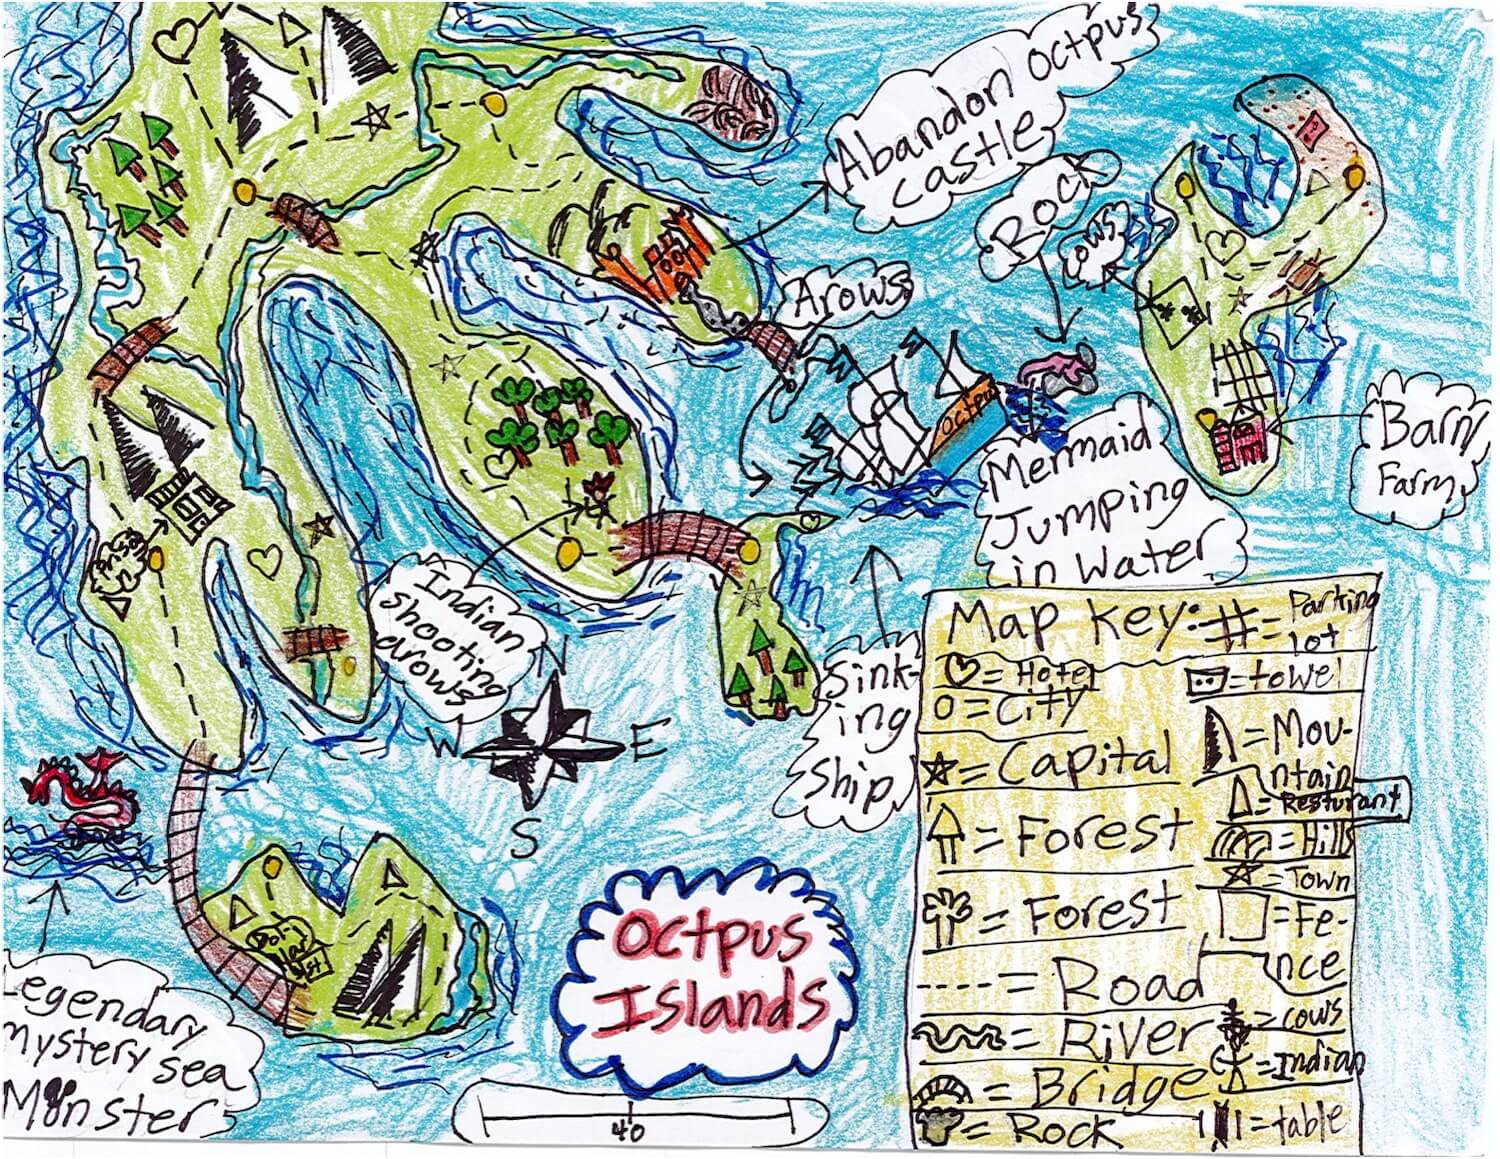 Abandon Octpus
castle
ROCK
cows
Arows
octpus
Mermaid
Jumping
in Water
Barn
Farm
Indian
shooting
arows
Sink-
ing
ship
N
W
E
S
Legendary
mystery sea
Monster
Octpus
Islands
40
Map Key:
# = Parking
lot
= Hotel
= towel
= City
= Mou-
ntain
= Capital
= Resturant
= Forest
= Hills
= Town
= Forest
= Fe-
nce
= Road
= cows
= River
= Indian
= Bridge
= Rock
= table